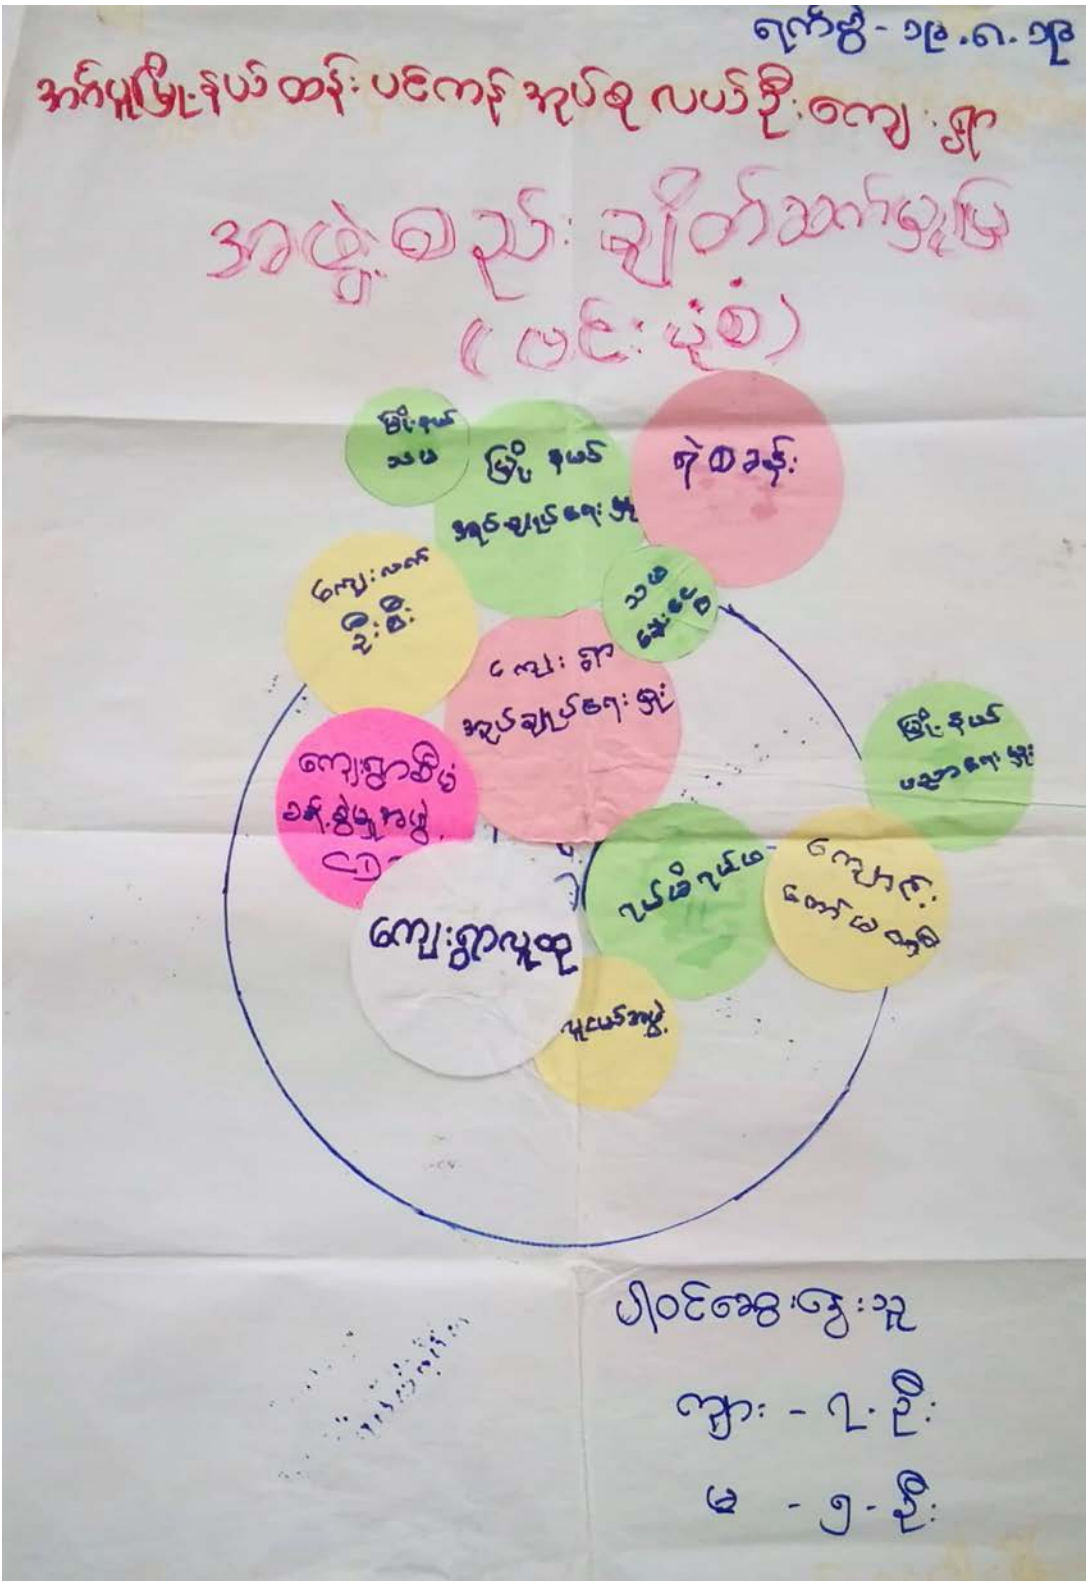 ရက်စွဲ - ၁၉.၈.၁၉
အင်္ဂပူမြို့နယ် ထန်းပင်ကုန်း အုပ်စု လယ်ဦး ကျေးရွာ
အဖွဲ့စည်း ချိတ်ဆက်မှုပြ
(ဗင်းပုံစံ)
မြို့နယ်
သမ
မြို့နယ်
အုပ်ချုပ်ရေးမှူး
ရဲစခန်း
ကျေးလက်
ဦးစီး
သမ
မွေးမြူ
ကျေးရွာ
အုပ်ချုပ်ရေးမှူး
မြို့နယ်
ပညာရေးမှူး
ကျေးရွာစီမံ
ခန့်ခွဲမှုအဖွဲ့
ရပ်မိရပ်ဖ
ကျောင်း
ကျေးရွာလူထု
လူငယ်အဖွဲ့
ပါဝင်ဆွေးနွေးသူ
ကျား - ၇ - ဦး
မ - ၅ - ဦး